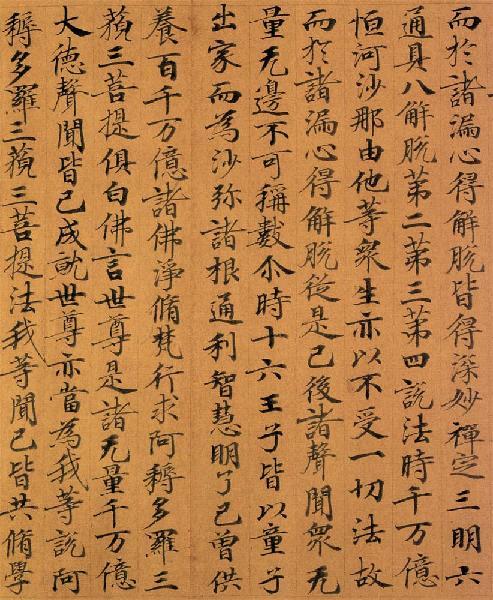 而於諸漏心得解脫皆得深妙禪定三明六
通具八解脫第二第三第四說法時千万億
恒河沙那由他等衆生亦以不受一切法故
而於諸漏心得解脫從是已後諸聲聞衆无
量无邊不可稱數尒時十六王子皆以童子
出家而為沙弥諸根通利智慧明了已曾供
養百千万億諸佛淨脩梵行求阿耨多羅三
藐三菩提俱白佛言世尊是諸无量千万億
大德聲聞皆已成就世尊亦當為我等說阿
耨多羅三藐三菩提法我等聞已皆共脩學